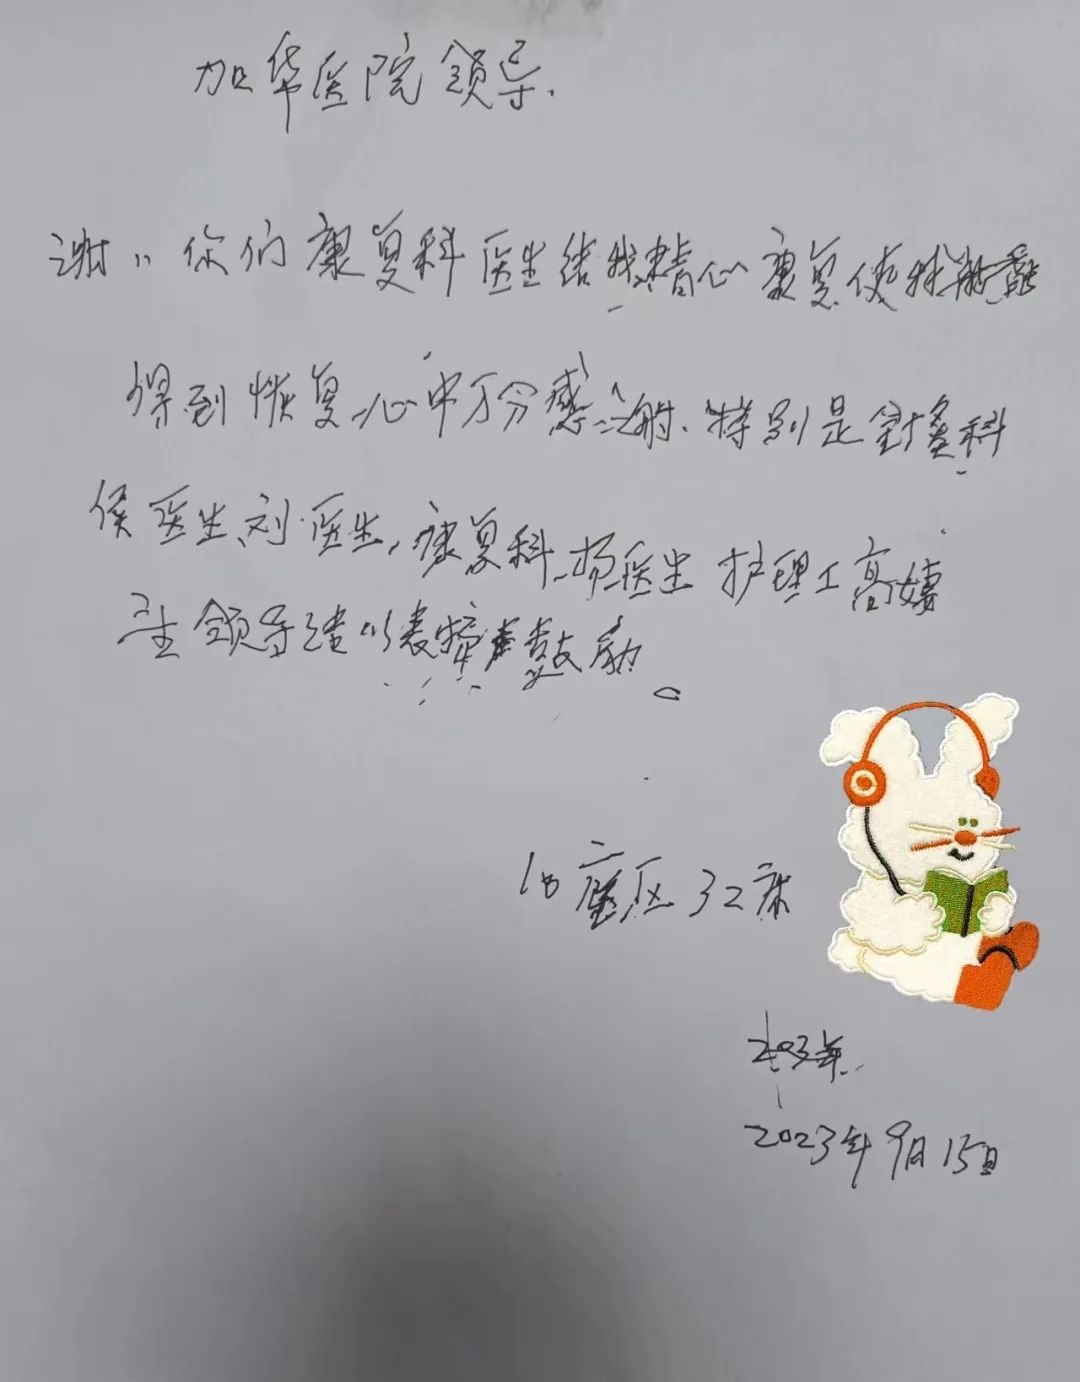 加华医院领导.
谢〃你们康复科医生给我精心康复使我
得到恢复心中万分感谢、特别是科
侯医生、刘医生,康复科杨医生护理工高
领导给以表鼓励。
区32床
2023年9月15日